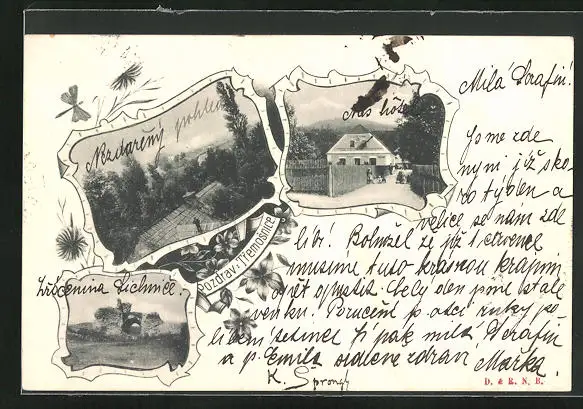 Nezdařený pohled
Náš
Pozdrav z Třemošnice
Zřícenina Lichnice.
Milá Serafin!
Jsme zde
nyní již sko-
ro týden a
velice se nám zde
líbí! Bohužel že již 1. července
musíme tuto krásnou krajinu
opět opustit. Celý den jsme stále
venku. Poručení p. otci ruky po-
líbení
Ti pak milá Serafin
a p. Emila srdečně zdraví
Mařka.
K.
D. & R. N. B.